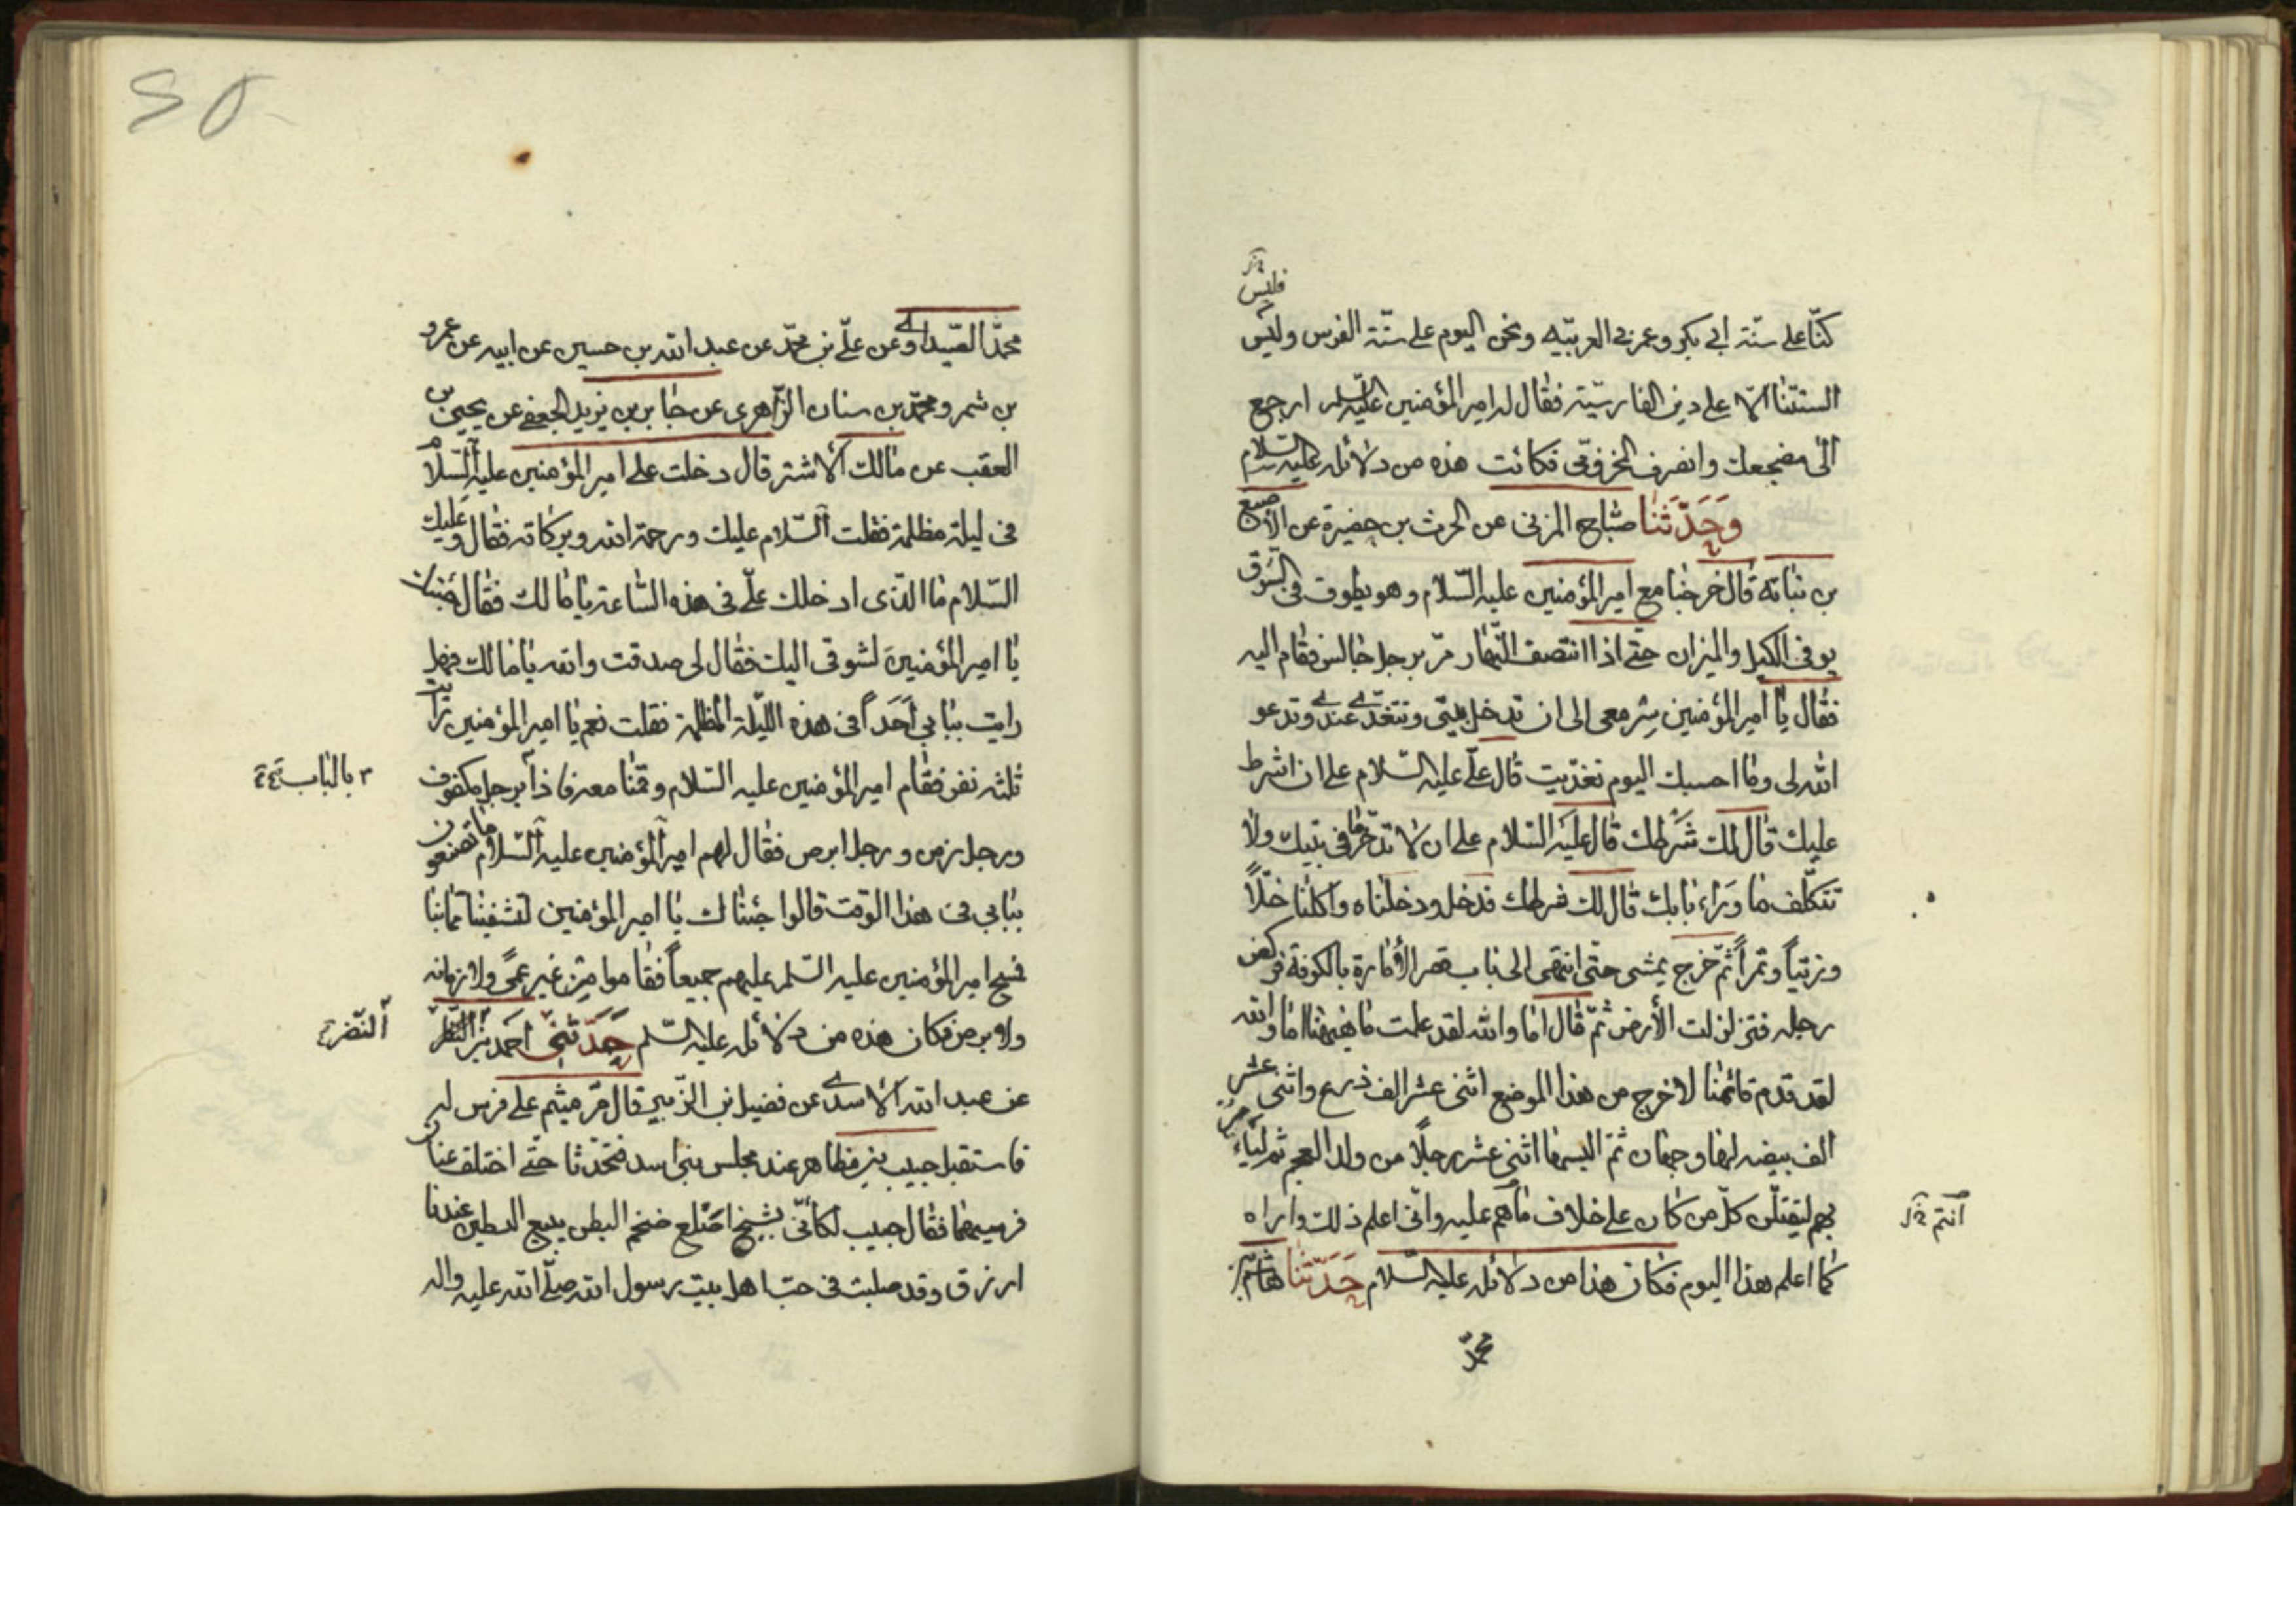 فليس
كنّا على سنّة ابي بكر وعمر في العربيّه ونحن اليوم على سنّة الفرس وليس
السنتنا الّا على دين الفارسيّة فقال له امير المؤمنين عليه السّلم ارجع
الى مضجعك وانصرف فكانت هذه من دلائله عليه السلام
وحَدّثنا صباح المزنى عن الحرث بن حضيرة عن الاصبغ
بن نباتة قال خرجنا مع امير المؤمنين عليه السّلام وهو يطوف فى السّوق
يوفى الكيل والميزان حتّى اذا انتصف النّهار مرّ برجل جالس فقام اليه
فقال يا امير المؤمنين سِر معى الى ان تدخل بيتى وتتغدّى عندى وتدعو
الله لى وما احسبك اليوم تغدّيت قال علّى عليه السّلام على ان اشرط
عليك قال لك شَرطك قال عليه السّلام على ان لا تدّخر ما فى بيتك ولا
تتكلّف ما وَراء بابك قال لك شرطك فدخل ودخلناه واكلنا خلّاً
وزيتاً وتمراً ثمّ خرج يمشى حتى انتهى الى باب قصر الأمارة بالكوفة فركض
رجله فتزلزلت الأرض ثمّ قال اما والله لقد علمت ما هيهنا اما والله
لقد قدم قائمنا لاخرج من هذا الموضع اثنى عشر الف ذرع واثنى عشر
الف بيضه لها وجهان ثمّ البسها اثنى عشر رجلًا من ولد العجم ثم
بهم ليقتلنّ كلّ من كان على خلاف ما هم عليه وانّى اعلم ذلك واراه
انتم
كما اعلم هذا اليوم فكان هذا من دلائله عليه السّلام حَدّثنا
محمّد
محمّد الصّيداوى وعن علّى بن محمّد عن عبد الله بن حسين عن ابيه عن عمرو
بن شمر ومحمّد بن سنان الزّاهرى عن جابر بن يزيد الجعفى عن يحيى بن
العقب عن مالك الاشتر قال دخلت على امير المؤمنين عليه السّلام
فى ليلة مظلمة فقلت السّلام عليك ورحمة الله وبركاته فقال وعليك
السّلام ما الذّى ادخلك علّى فى هذه السّاعة يا مالك فقال
يا امير المؤمنين لشوقى اليك فقال لى صدقت والله يا مالك فهل
رايت ببابي أحَداً فى هذه اللّيلة المظلمة فقلت نعم يا امير المؤمنين رايت
ثلثة نفر فقام امير المؤمنين عليه السّلام وقمنا معه فاذا برجل مكفوف
بالباب
ورجل زمن ورجل ابرص فقال لهم امير المؤمنين عليه السّلام ما تصنعون
ببابي فى هذا الوقت قالوا جئناك يا امير المؤمنين لتشفينا ممّا بنا
فمسح امير المؤمنين عليه السّلم عليهم جميعاً فقاموا من غير عمى ولا زمانه
ولا برص فكان هذه من دلائله عليه السّلم حَدّثنى احمد بن النّظر
النّضر
عن عبد الله الاسدى عن فضيل بن الزّبير قال مرّ ميثم على فرس له
فاستقبل حبيب بن مظاهر عند مجلس بنى اسد فتحدّثا حتّى اختلف عنا
فرسيهما فقال حبيب لكانّى بشيخ اصلع ضخم البطن يبيع البطيخ عند
ارزق وقد صلبت فى حبّ اهل بيت رسول الله صلّى الله عليه واله